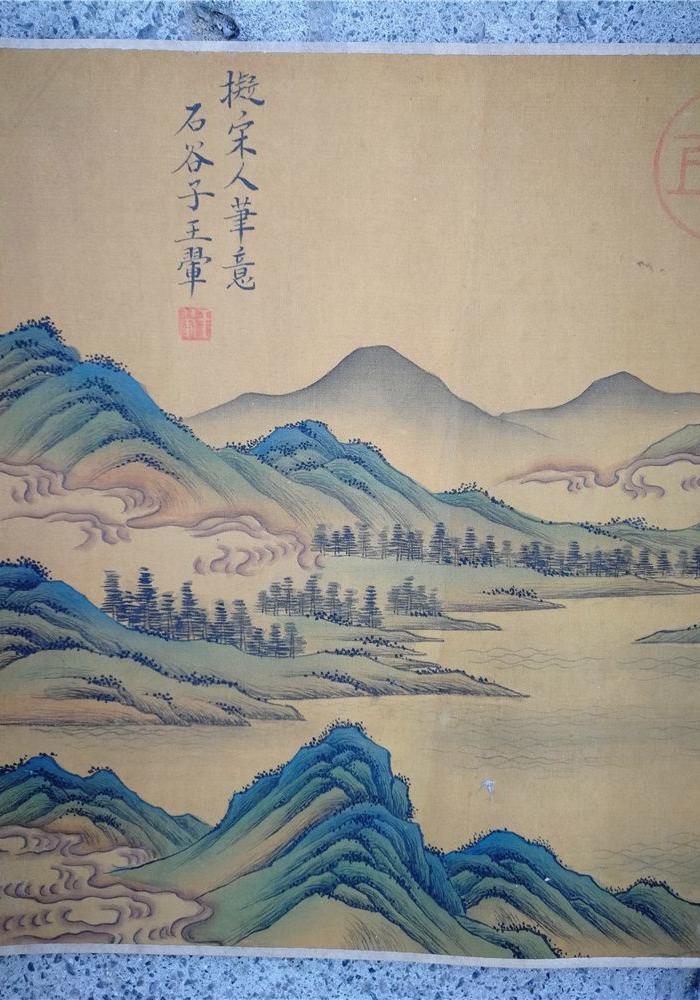 擬宋人筆意
石谷子王翬